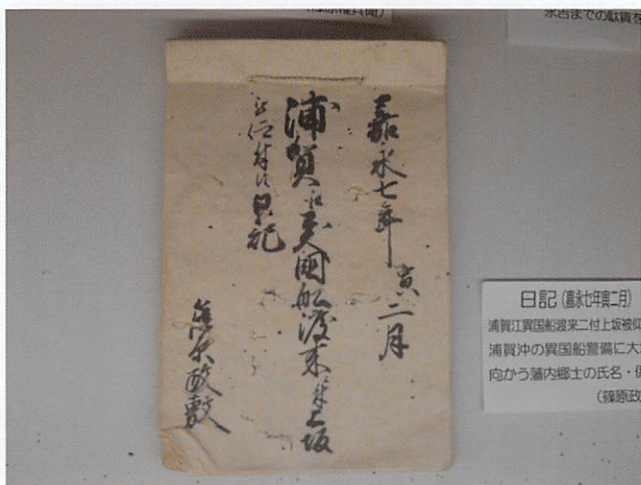 嘉永七年寅二月
浦賀江異國船渡来ニ付上坂
被仰付候日記
篠原政敷
日記(嘉永七年寅二月)
浦賀江異国船渡来二付上坂被仰
浦賀沖の異国船警備に大
向かう藩内郷士の氏名・
(篠原政
永吉までの献賞を